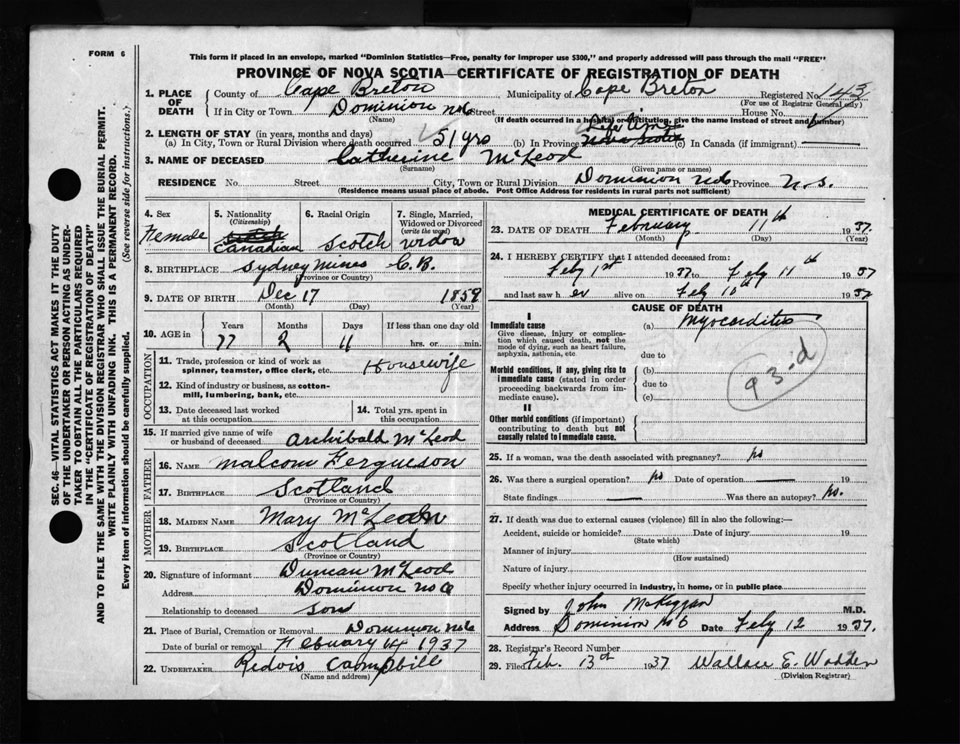 FORM 6
This form if placed in an envelope, marked "Dominion Statistics—Free, penalty for improper use $300," and properly addressed will pass through the mail "FREE"
PROVINCE OF NOVA SCOTIA—CERTIFICATE OF REGISTRATION OF DEATH
1. PLACE OF DEATH
County of Cape Breton Municipality of Cape Breton Registered No. 143
(For use of Registrar General only)
If in City or Town Dominion No 6 Street House No.
(Name) (If death occurred in a hospital or institution, give the name instead of street and number)
2. LENGTH OF STAY (in years, months and days)
(a) In City, Town or Rural Division where death occurred 51 yrs (b) In Province Life time Nova Scotia (c) In Canada (if immigrant)
3. NAME OF DECEASED Catherine McLeod
(Surname) (Given name or names)
RESIDENCE No. Street City, Town or Rural Division Dominion No 6 Province N.S.
(Residence means usual place of abode. Post Office Address for residents in rural parts not sufficient)
4. Sex Female
5. Nationality (Citizenship) Canadian
6. Racial Origin Scotch
7. Single, Married, Widowed or Divorced (write the word) widow
8. BIRTHPLACE Sydney Mines C.B.
(Province or Country)
9. DATE OF BIRTH Dec 17 1859
(Month) (Day) (Year)
10. AGE in Years Months Days If less than one day old
77 2 11 hrs. or min.
OCCUPATION
11. Trade, profession or kind of work as spinner, teamster, office clerk, etc. Housewife
12. Kind of industry or business, as cotton-mill, lumbering, bank, etc.
13. Date deceased last worked at this occupation
14. Total yrs. spent in this occupation
15. If married give name of wife or husband of deceased Archibald McLeod
FATHER
16. NAME Malcom Fergueson
17. BIRTHPLACE Scotland
(Province or Country)
MOTHER
18. MAIDEN NAME Mary
19. BIRTHPLACE Scotland
(Province or Country)
20. Signature of informant Duncan McLeod
Address Dominion No 6
Relationship to deceased Son
21. Place of Burial, Cremation or Removal Dominion No 6
Date of burial or removal Febuary 14 1937
22. UNDERTAKER Campbill
(Name and address)
MEDICAL CERTIFICATE OF DEATH
23. DATE OF DEATH February 11th 1937.
(Month) (Day) (Year)
24. I HEREBY CERTIFY that I attended deceased from:
Feby 1st 1937 to Feby 11th 1937
and last saw her alive on Feby 10th 1937
CAUSE OF DEATH
I
Immediate cause
Give disease, injury or complication which caused death, not the mode of dying, such as heart failure, asphyxia, asthenia, etc
(a) Myocarditis
due to
Morbid conditions, if any, giving rise to immediate cause (stated in order proceeding backwards from immediate cause).
(b)
due to
(c)
93·d
II
Other morbid conditions (if important) contributing to death but not causally related to immediate cause.
25. If a woman, was the death associated with pregnancy? No
26. Was there a surgical operation? No Date of operation 19
State findings Was there an autopsy? No.
27. If death was due to external causes (violence) fill in also the following:—
Accident, suicide or homicide? Date of injury 19
(State which)
Manner of injury
(How sustained)
Nature of injury
Specify whether injury occurred in industry, in home, or in public place
Signed by John McKiggan M.D.
Address Dominion No 6 Date Feby 12 1937.
28. Registrar's Record Number
29. Filed Feb. 13th 1937 Wallace E. Wadden
(Division Registrar)
SEC. 46—VITAL STATISTICS ACT MAKES IT THE DUTY
OF THE UNDERTAKER OR PERSON ACTING AS UNDER-
TAKER TO OBTAIN ALL THE PARTICULARS REQUIRED
IN THE "CERTIFICATE OF REGISTRATION OF DEATH"
AND TO FILE THE SAME WITH THE DIVISION REGISTRAR WHO SHALL ISSUE THE BURIAL PERMIT.
WRITE PLAINLY WITH UNFADING INK. THIS IS A PERMANENT RECORD.
Every item of information should be carefully supplied. (See reverse side for instructions.)